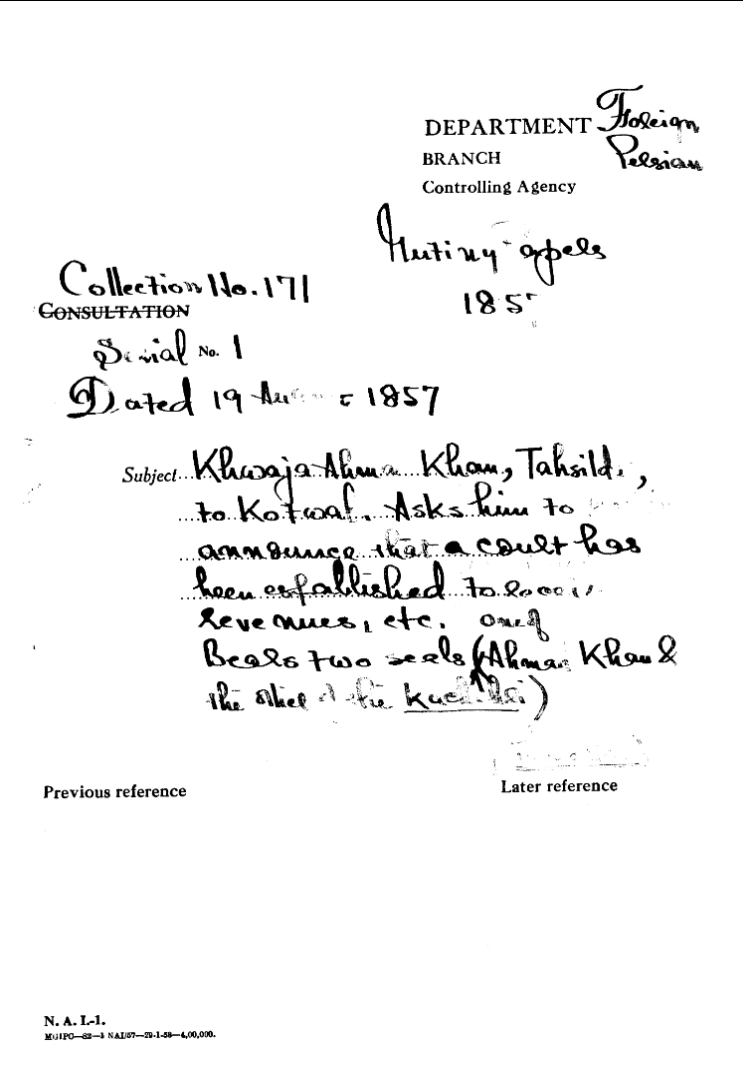 DEPARTMENT Foreign
BRANCH Persian
Controlling Agency
Mutiny
185
Collection No. 171
CONSULTATION
Serial No. 1
Dated 19 1857
Subject Khwaja Khan,
to Kotwal. Asks him to
announce that a court has
been established to
Revenues, etc.
Bears two seals ( Khan &
the Other the )
Previous reference
Later reference
N. A. I.-1.
MGIPC—82—3 NAI/57—29-1-58—4,00,000.